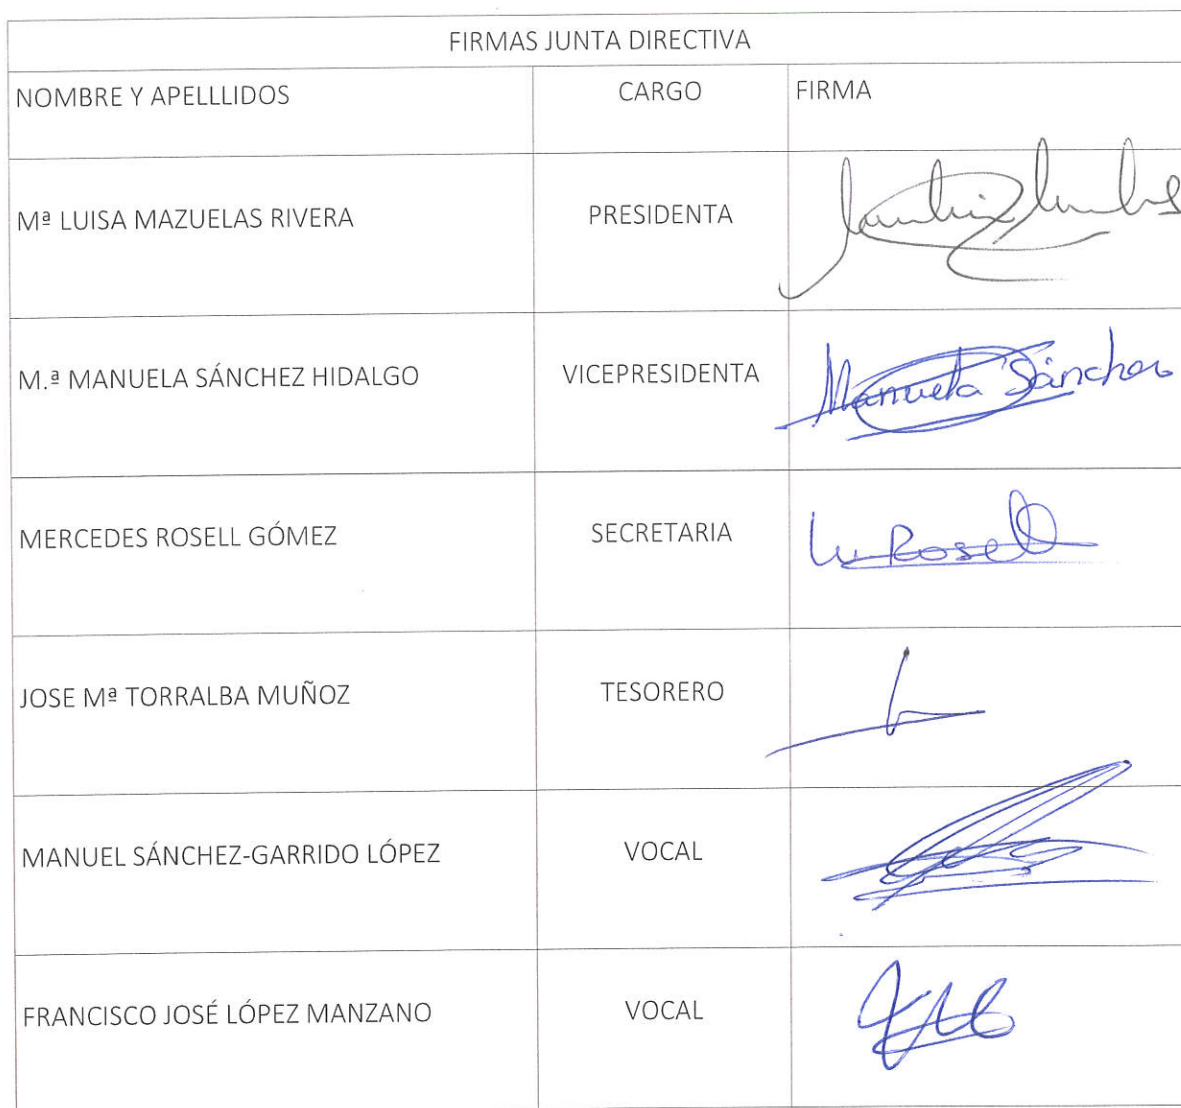 FIRMAS JUNTA DIRECTIVA
NOMBRE Y APELLLIDOS CARGO FIRMA
Mª LUISA MAZUELAS RIVERA PRESIDENTA
M.ª MANUELA SÁNCHEZ HIDALGO VICEPRESIDENTA Manuela Sánchez
MERCEDES ROSELL GÓMEZ SECRETARIA M Rosell
JOSE Mª TORRALBA MUÑOZ TESORERO
MANUEL SÁNCHEZ-GARRIDO LÓPEZ VOCAL
FRANCISCO JOSÉ LÓPEZ MANZANO VOCAL